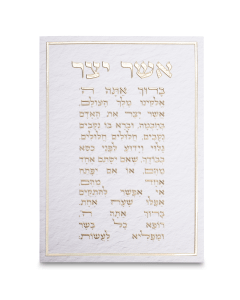 אשר יצר
ברוך אתה ה'
אלקינו מלך העולם,
אשר יצר את האדם
בחכמה, וברא בו נקבים
נקבים, חלולים חלולים.
גלוי וידוע לפני כסא
כבודך, שאם יסתם אחד
מהם, או אם יפתח
אחד מהם,
אי אפשר להתקיים
אפלו שעה אחת.
ברוך אתה ה',
רופא כל בשר
ומפליא לעשות.